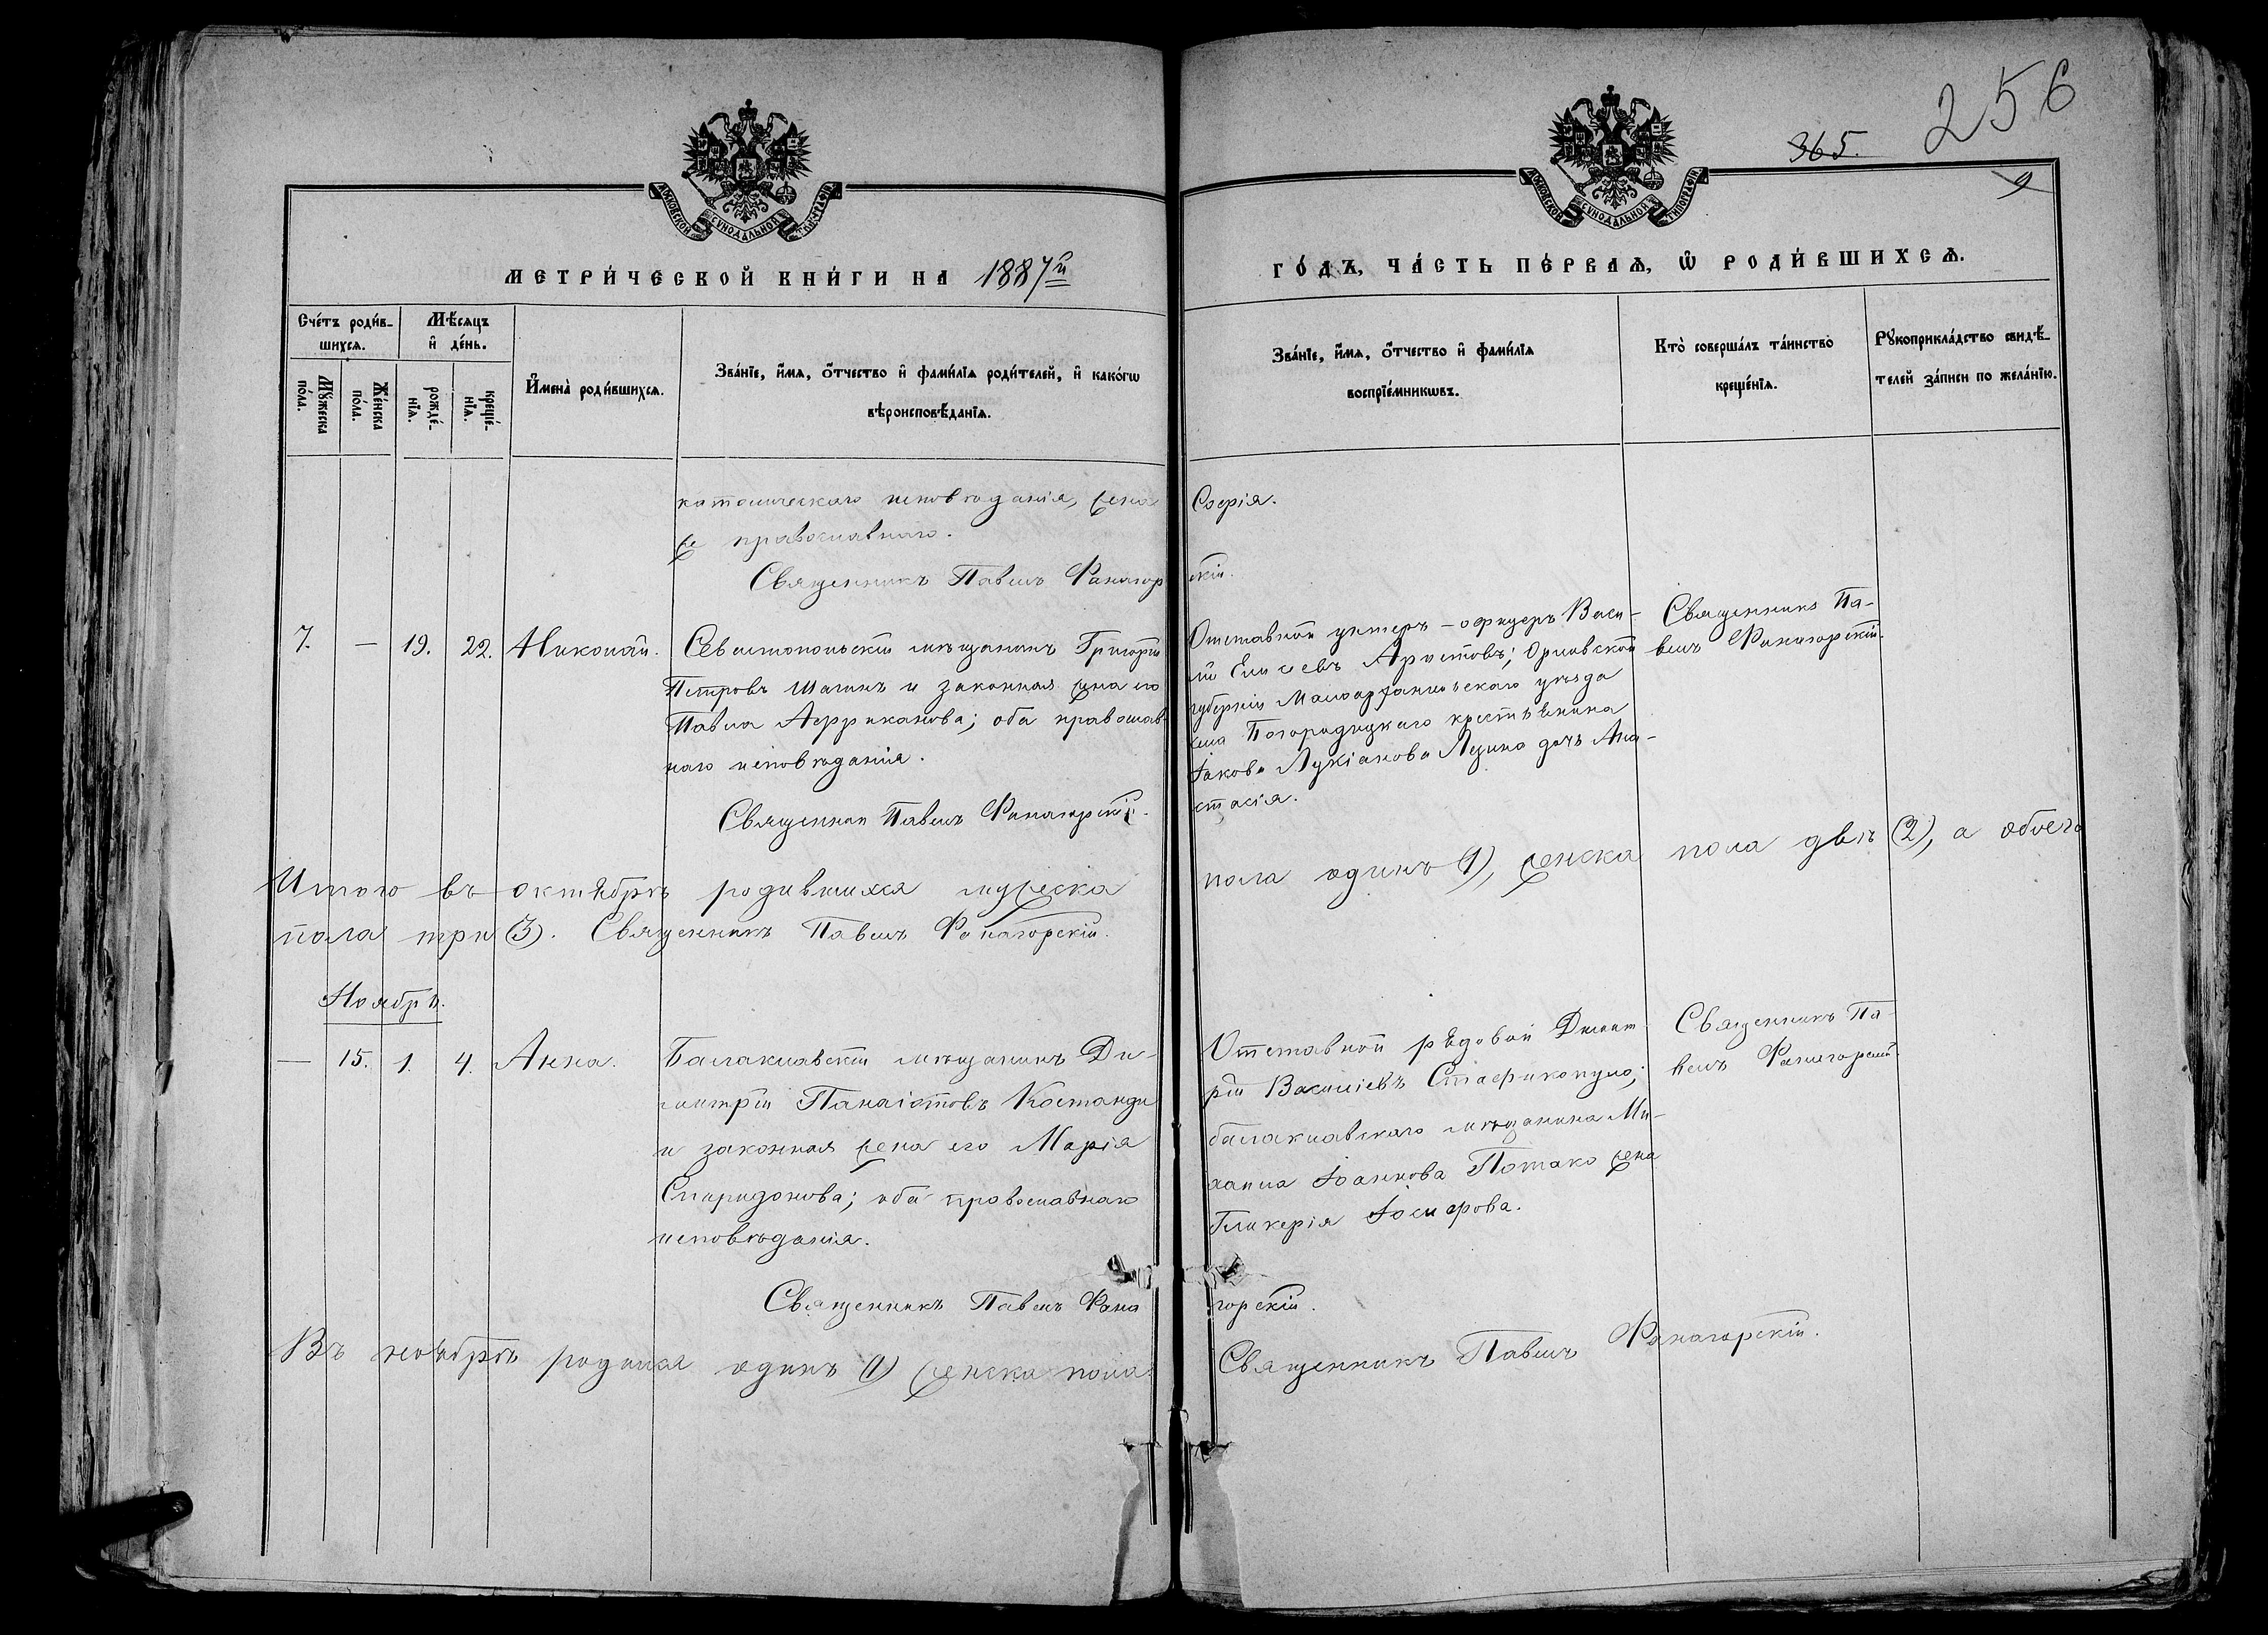 256
365.
МОСКОВСКОЙ СѴНОДАЛЬНОЙ ТИПОГРАФІИ
МОСКОВСКОЙ СѴНОДАЛЬНОЙ ТИПОГРАФІИ
МЕТРИ́ЧЕСКОЙ КНИ́ГИ НА 1887й
ГО́ДЪ, ЧА́СТЬ ПЕ́РВАѦ, Ѡ҆ РОДИ́ВШИХСѦ.
Сче́тъ роди́в-
шихсѧ.
Мѣ́сѧцъ
и҆ де́нь.
Мꙋ́жеска
по́ла.
Же́нска
по́ла.
рожде́-
нїѧ.
креще́-
нїѧ.
И҆мена̀ роди́вшихсѧ.
Зва́нїе, и҆́мѧ, ѻ҆́тчество и҆ фами́лїѧ роди́телей, и҆ како́гѡ
вѣроисповѣ́данїѧ.
Зва́нїе, и҆́мѧ, ѻ҆́тчество и҆ фами́лїѧ
воспрїе́мникѡвъ.
Кто̀ соверша́лъ та́инство
креще́нїѧ.
Рꙋкоприкла́дство свидѣ́-
телей за́писи по жела́нїю.
католическаго исповѣданія, жена
же православнаго.
Священникъ Павелъ Фанагор
Софія.
скій.
7. — 19. 22. Николай.
Севастопольскій мѣщанинъ Григорій
Петровъ Шагинъ и законная жена его
Павла Африканова; оба православ-
наго исповѣданія.
Священник Павелъ Фанагорскій.
Отставной унтеръ-офицеръ Васи-
лій Елисеевъ Аристовъ; Орловской
губерніи Малоархангельскаго уѣзда
села Богородицкаго крестьянина
Іакова Лукіанова дочь Ана-
стасія.
Священникъ Па-
велъ Фанагорскій.
Итого въ октябрѣ родившихся мужеска
пола одинъ (1), женска пола двѣ (2), а обоего
пола три (3). Священникъ Павелъ Фанагорскій.
Ноябрь.
— 15. 1. 4. Анна.
Балаклавскій мѣщанинъ Ди-
митрій Панаіотовъ Костанди
и законная жена его Марія
Спиридонова; оба православнаго
исповѣданія.
Священникъ Павелъ Фана
Отставной рядовой Димит-
рій Василіевъ Стафикопуло;
балаклавскаго мѣщанина Ми-
хаила Іоаннова Потако жена
Гликерія Іосифова.
горскій.
Священникъ Па-
велъ Фанагорскій.
Въ ноябрѣ родился одинъ (1) женска пола.
Священникъ Павелъ Фанагорскій.